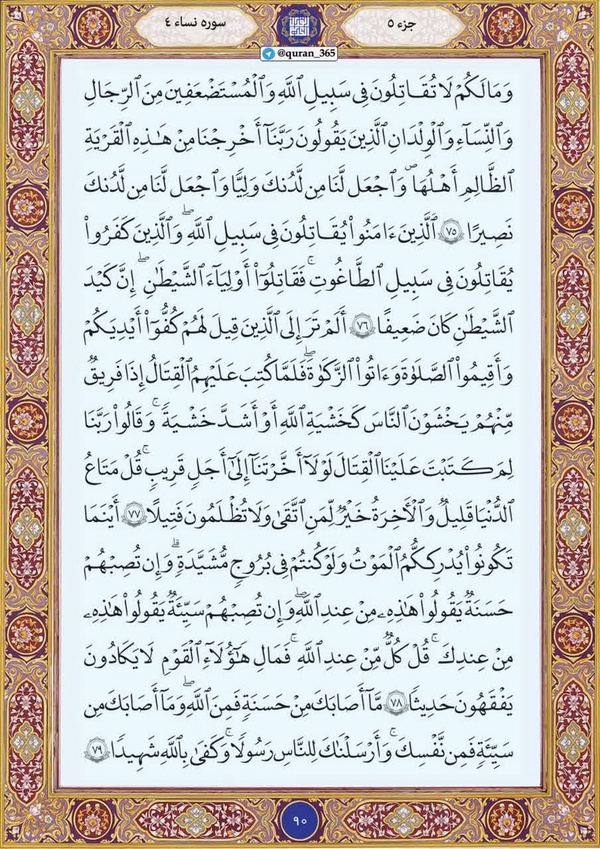 جزء ۵
سوره نساء ۴
@quran_365
وَمَا لَكُمْ لَا تُقَٰتِلُونَ فِى سَبِيلِ ٱللَّهِ وَٱلْمُسْتَضْعَفِينَ مِنَ ٱلرِّجَالِ
وَٱلنِّسَآءِ وَٱلْوِلْدَٰنِ ٱلَّذِينَ يَقُولُونَ رَبَّنَآ أَخْرِجْنَا مِنْ هَٰذِهِ ٱلْقَرْيَةِ
ٱلظَّالِمِ أَهْلُهَا وَٱجْعَل لَّنَا مِن لَّدُنكَ وَلِيًّا وَٱجْعَل لَّنَا مِن لَّدُنكَ
نَصِيرًا ۷۵ ٱلَّذِينَ ءَامَنُوا۟ يُقَٰتِلُونَ فِى سَبِيلِ ٱللَّهِ ۖ وَٱلَّذِينَ كَفَرُوا۟
يُقَٰتِلُونَ فِى سَبِيلِ ٱلطَّٰغُوتِ فَقَٰتِلُوٓا۟ أَوْلِيَآءَ ٱلشَّيْطَٰنِ ۖ إِنَّ كَيْدَ
ٱلشَّيْطَٰنِ كَانَ ضَعِيفًا ۷۶ أَلَمْ تَرَ إِلَى ٱلَّذِينَ قِيلَ لَهُمْ كُفُّوٓا۟ أَيْدِيَكُمْ
وَأَقِيمُوا۟ ٱلصَّلَوٰةَ وَءَاتُوا۟ ٱلزَّكَوٰةَ فَلَمَّا كُتِبَ عَلَيْهِمُ ٱلْقِتَالُ إِذَا فَرِيقٌ
مِّنْهُمْ يَخْشَوْنَ ٱلنَّاسَ كَخَشْيَةِ ٱللَّهِ أَوْ أَشَدَّ خَشْيَةً ۚ وَقَالُوا۟ رَبَّنَا
لِمَ كَتَبْتَ عَلَيْنَا ٱلْقِتَالَ لَوْلَآ أَخَّرْتَنَآ إِلَىٰٓ أَجَلٍ قَرِيبٍ ۗ قُلْ مَتَٰعُ
ٱلدُّنْيَا قَلِيلٌ وَٱلْأَخِرَةُ خَيْرٌ لِّمَنِ ٱتَّقَىٰ وَلَا تُظْلَمُونَ فَتِيلًا ۷۷ أَيْنَمَا
تَكُونُوا۟ يُدْرِككُّمُ ٱلْمَوْتُ وَلَوْ كُنتُمْ فِى بُرُوجٍ مُّشَيَّدَةٍ ۗ وَإِن تُصِبْهُمْ
حَسَنَةٌ يَقُولُوا۟ هَٰذِهِۦ مِنْ عِندِ ٱللَّهِ ۖ وَإِن تُصِبْهُمْ سَيِّئَةٌ يَقُولُوا۟ هَٰذِهِۦ
مِنْ عِندِكَ ۚ قُلْ كُلٌّ مِّنْ عِندِ ٱللَّهِ ۖ فَمَالِ هَٰٓؤُلَآءِ ٱلْقَوْمِ لَا يَكَادُونَ
يَفْقَهُونَ حَدِيثًا ۷۸ مَّآ أَصَابَكَ مِنْ حَسَنَةٍ فَمِنَ ٱللَّهِ ۖ وَمَآ أَصَابَكَ مِن
سَيِّئَةٍ فَمِن نَّفْسِكَ ۚ وَأَرْسَلْنَٰكَ لِلنَّاسِ رَسُولًا ۚ وَكَفَىٰ بِٱللَّهِ شَهِيدًا ۷۹
۹۰